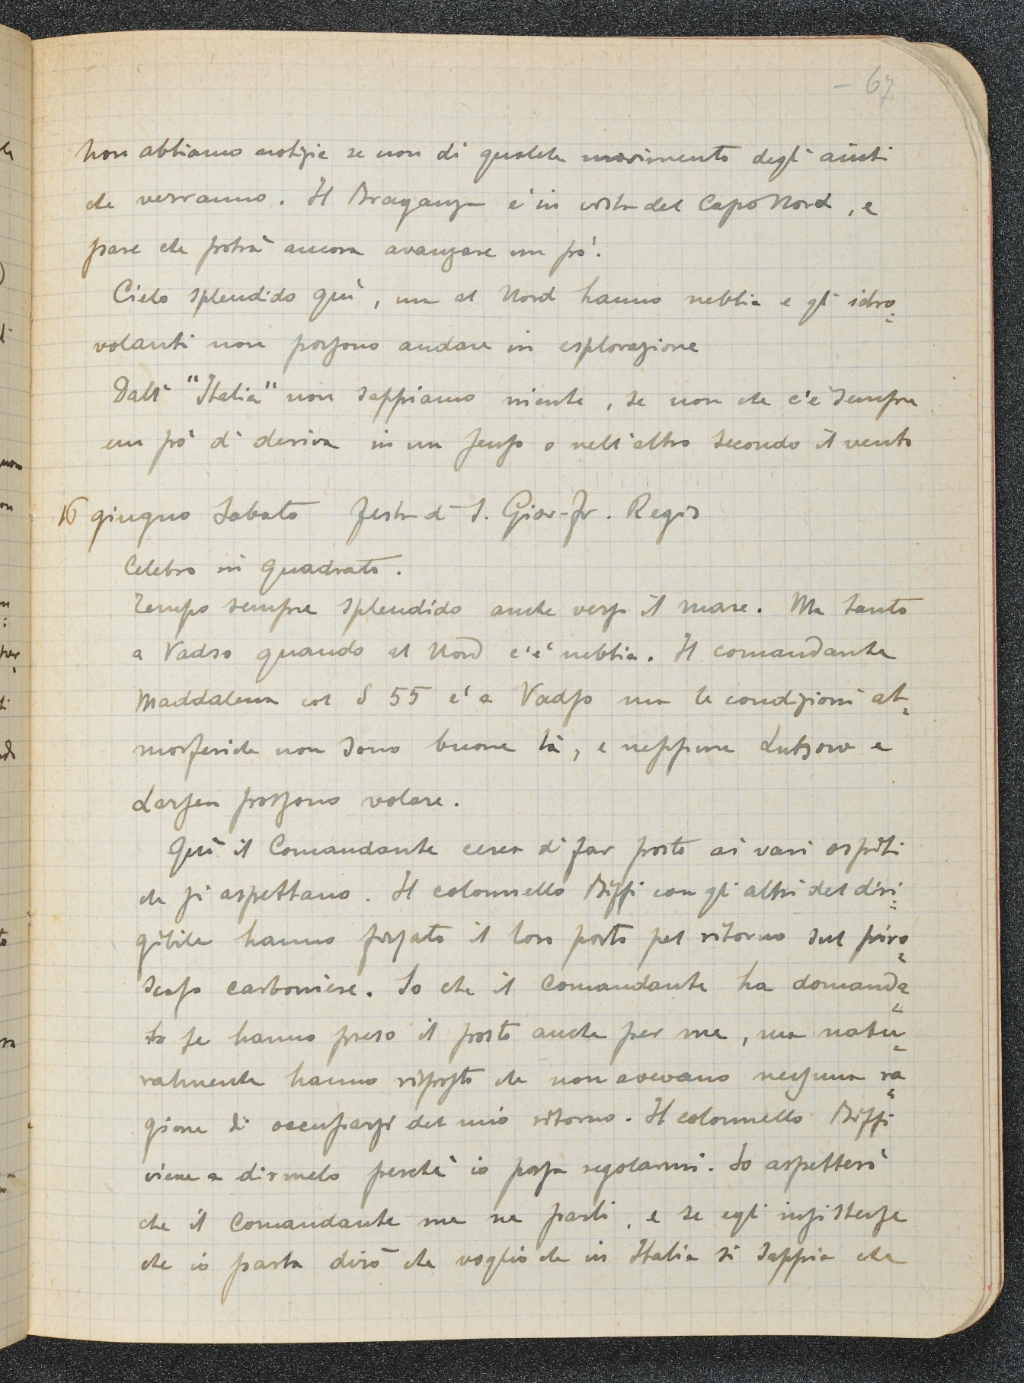 - 67
non abbiamo notizie se non di qualche movimento degli aiuti
che verranno. Il Braganza è in vista del Capo Nord, e
pare che potrà ancora avanzare un pò.
Cielo splendido quì, ma al Nord hanno nebbia e gli idro=
volanti non possono andare in esplorazione
Dall' "Italia" non sappiamo niente, se non che c'è sempre
un pò di deriva in un senso o nell'altro secondo il vento
16 giugno Sabato festa di S. Giov-Fr. Regis
Celebro in quadrato.
Tempo sempre splendido anche verso il mare. Ma tanto
a Vadso quando al Nord c'è nebbia. Il comandante
Maddalena col S 55 è a Vadso ma le condizioni at=
mosferiche non sono buone là, e neppure Lutzow e
Larsen possono volare.
Quì il Comandante cerca di far posto ai vari ospiti
che si aspettano. Il colonnello Biffi con gli altri del diri=
gibile hanno fissato il loro posto pel ritorno sul piro=
scafo carboniere. So che il Comandante ha domanda=
to se hanno preso il posto anche per me, ma natu=
ralmente hanno risposto che non avevano nessuna ra=
gione di occuparsi del mio ritorno. Il colonnello Biffi
viene a dirmelo perchè io possa regolarmi. Io aspetterò
che il Comandante me ne parli, e se egli insistesse
che io parta dirò che voglio che in Italia si sappia che